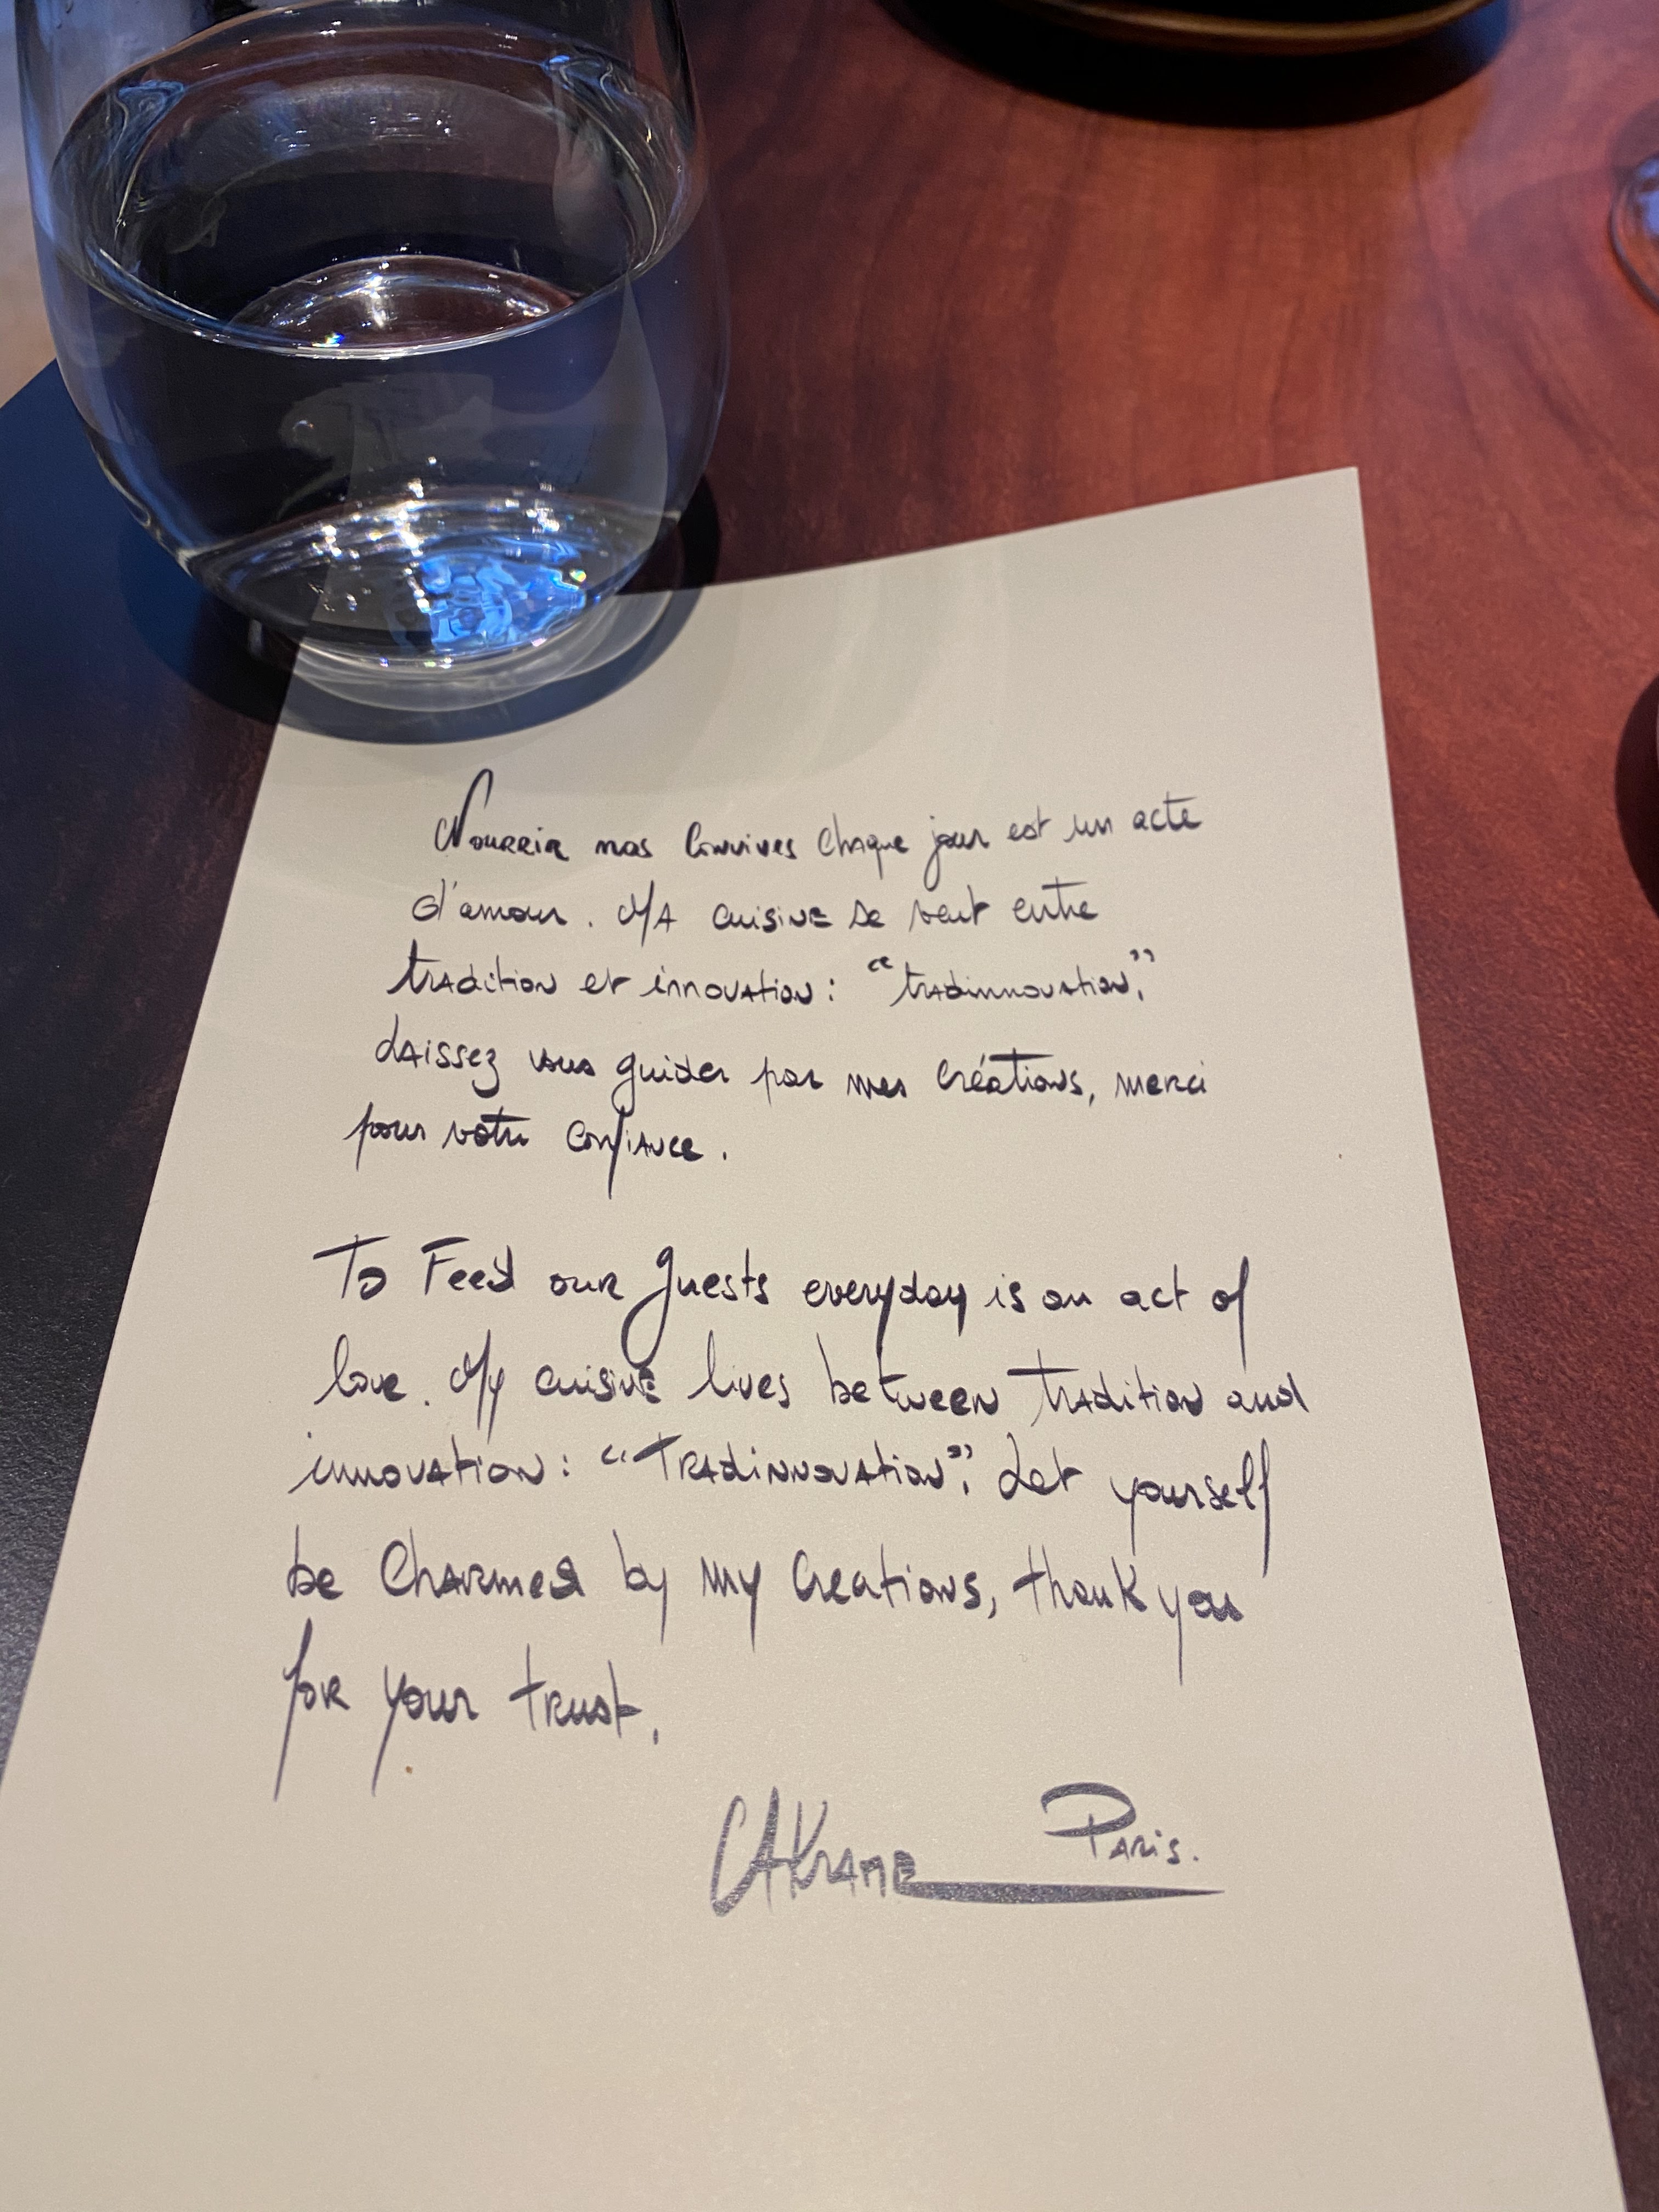 Nourrir nos convives chaque jour est un acte
d'amour. Ma cuisine se veut entre
tradition et innovation : "tradinnovation".
Laissez vous guider par mes créations, merci
pour votre confiance.
To Feed our guests everyday is an act of
love. My cuisine lives between tradition and
innovation : "Tradinnovation". Let yourself
be Charmed by my Creations, thank you
for your trust.
AKrame Paris.